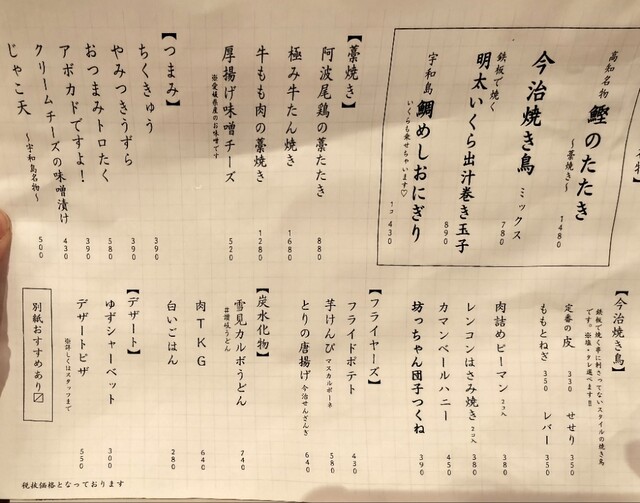 物】
高知名物 鰹のたたき
～藁焼き～
1480
今治焼き鳥 ミックス
780
鉄板で焼く
明太いくら出汁巻き玉子
890
宇和島 鯛めしおにぎり
いくらも乗せちゃいます♡
1コ 430
【藁焼き】
阿波尾鶏の藁たたき
880
極み牛たん焼き
1680
牛もも肉の藁焼き
1280
厚揚げ味噌チーズ
※愛媛県産のお味噌です
520
【つまみ】
ちくきゅう
390
やみつきうずら
390
おつまみトロたく
580
アボカドですよ！
390
クリームチーズの味噌漬け
430
じゃこ天 ～宇和島名物～
500
【今治焼き鳥】
鉄板で焼く串に刺さってないスタイルの焼き鳥
です。※塩・タレ選べます‼
定番の皮 330
せせり 350
ももとねぎ 350
レバー 350
肉詰めピーマン 2コ入
380
レンコンはさみ焼き 2コ入
380
カマンベールハニー
450
坊っちゃん団子つくね
390
【フライヤーズ】
フライドポテト
430
芋けんぴ マスカルポーネ
580
とりの唐揚げ 今治せんざんき
640
【炭水化物】
雪見カルボうどん
#讃岐うどん
740
肉TKG
640
白いごはん
280
【デザート】
ゆずシャーベット
300
デザートピザ
※詳しくはスタッフまで
550
別紙おすすめあり〼
税抜価格となっております